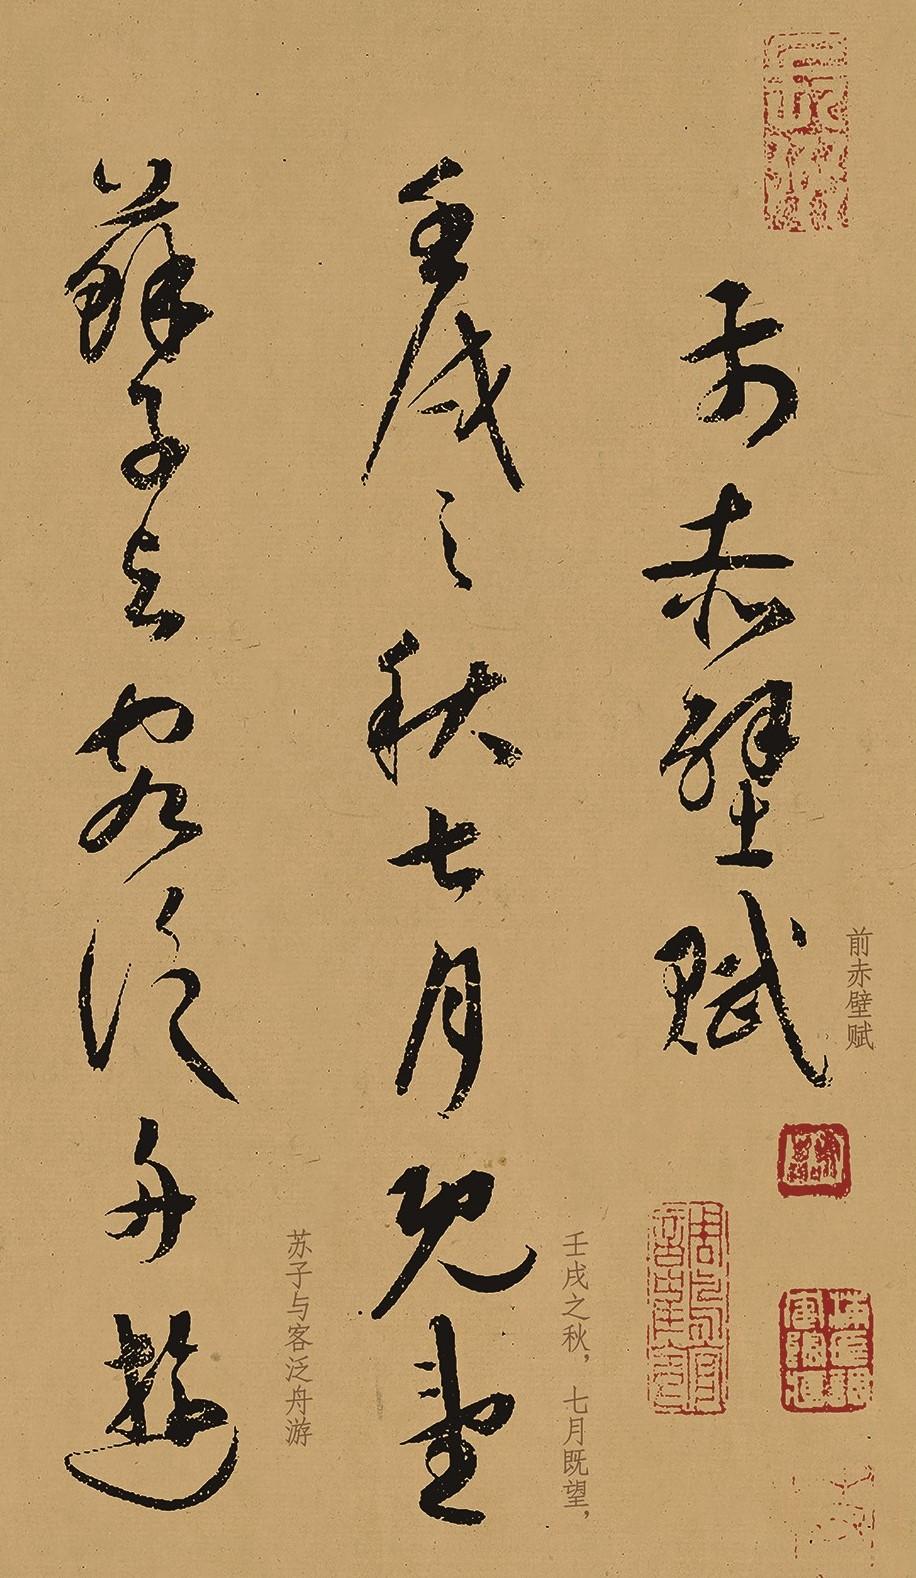 前赤壁賦
前赤壁赋
壬戌之秋七月既望
壬戌之秋，七月既望，
蘇子與客泛舟遊
苏子与客泛舟游